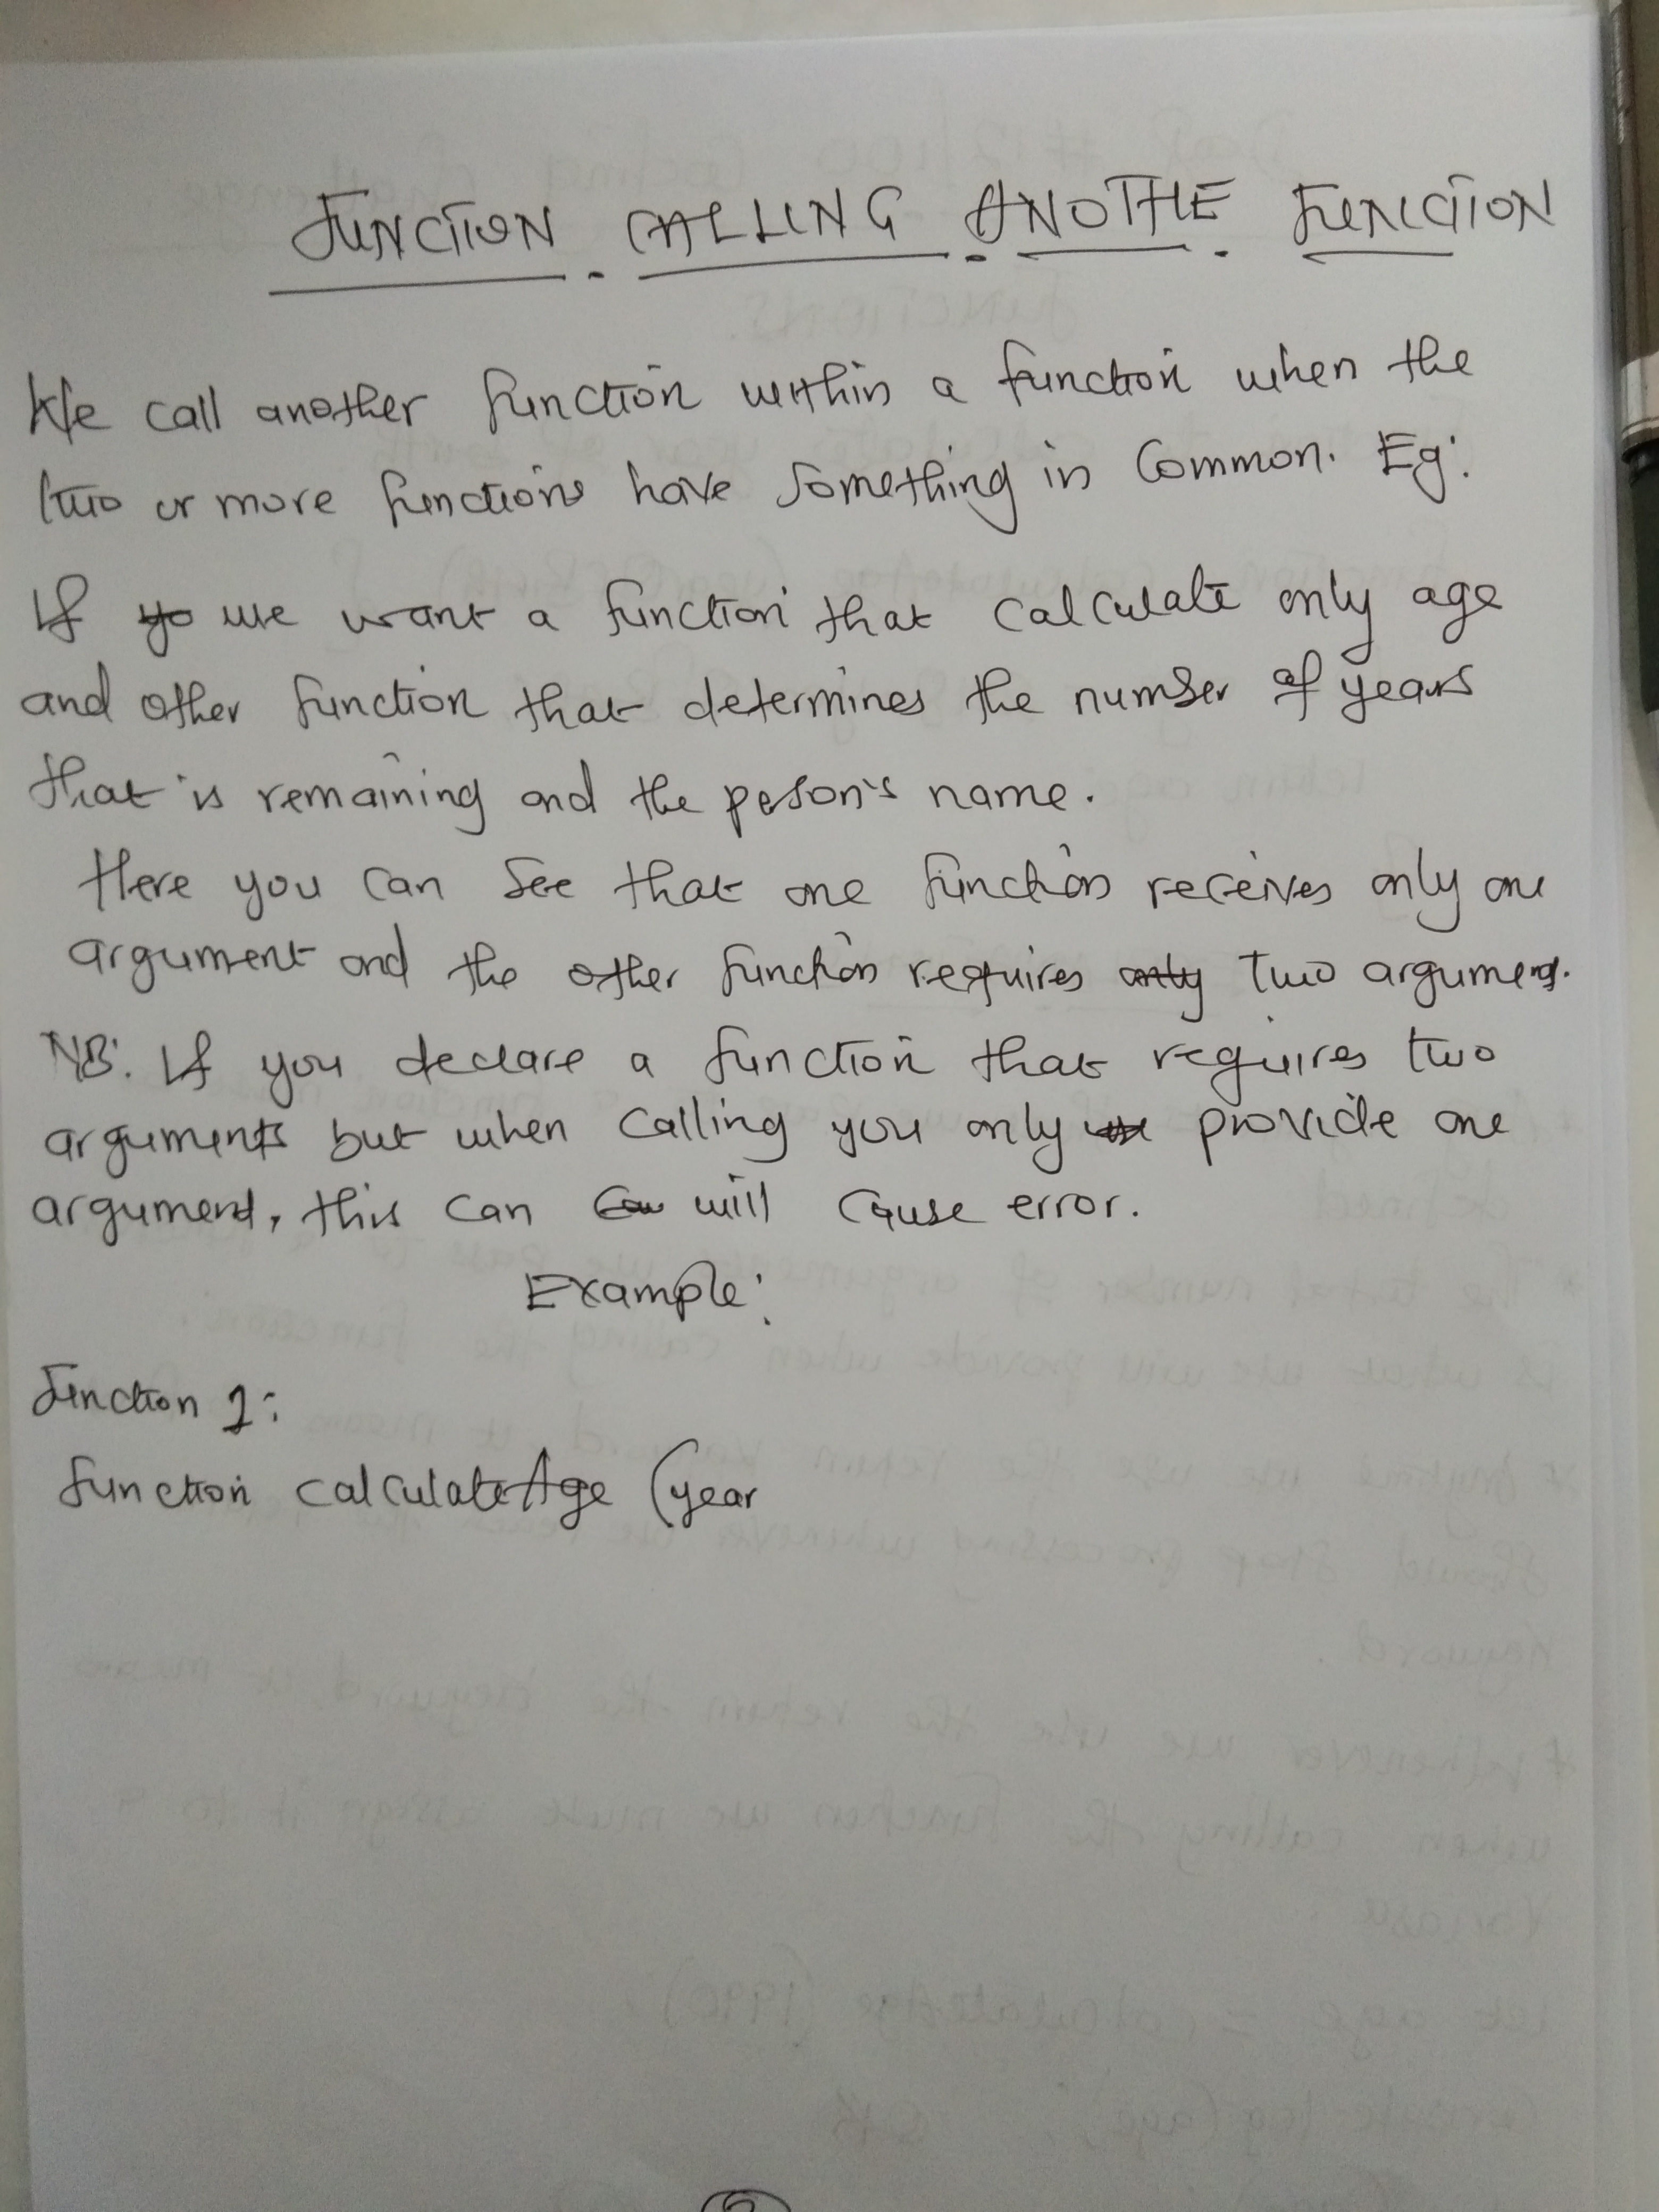 FUNCTION CALLING ANOTHE FUNCTION
We call another function within a function when the
two or more functions have something in Common. Eg:
If yo we want a function that calculate only age
and other function that determines the number of years
that is remaining and the peson's name.
Here you can see that one function receives only one
argument and the other function requires only two argument.
NB: If you declare a function that requires two
arguments but when calling you only provide one
argument, this can will cause error.
Example:
Function 1:
function calculateAge (year